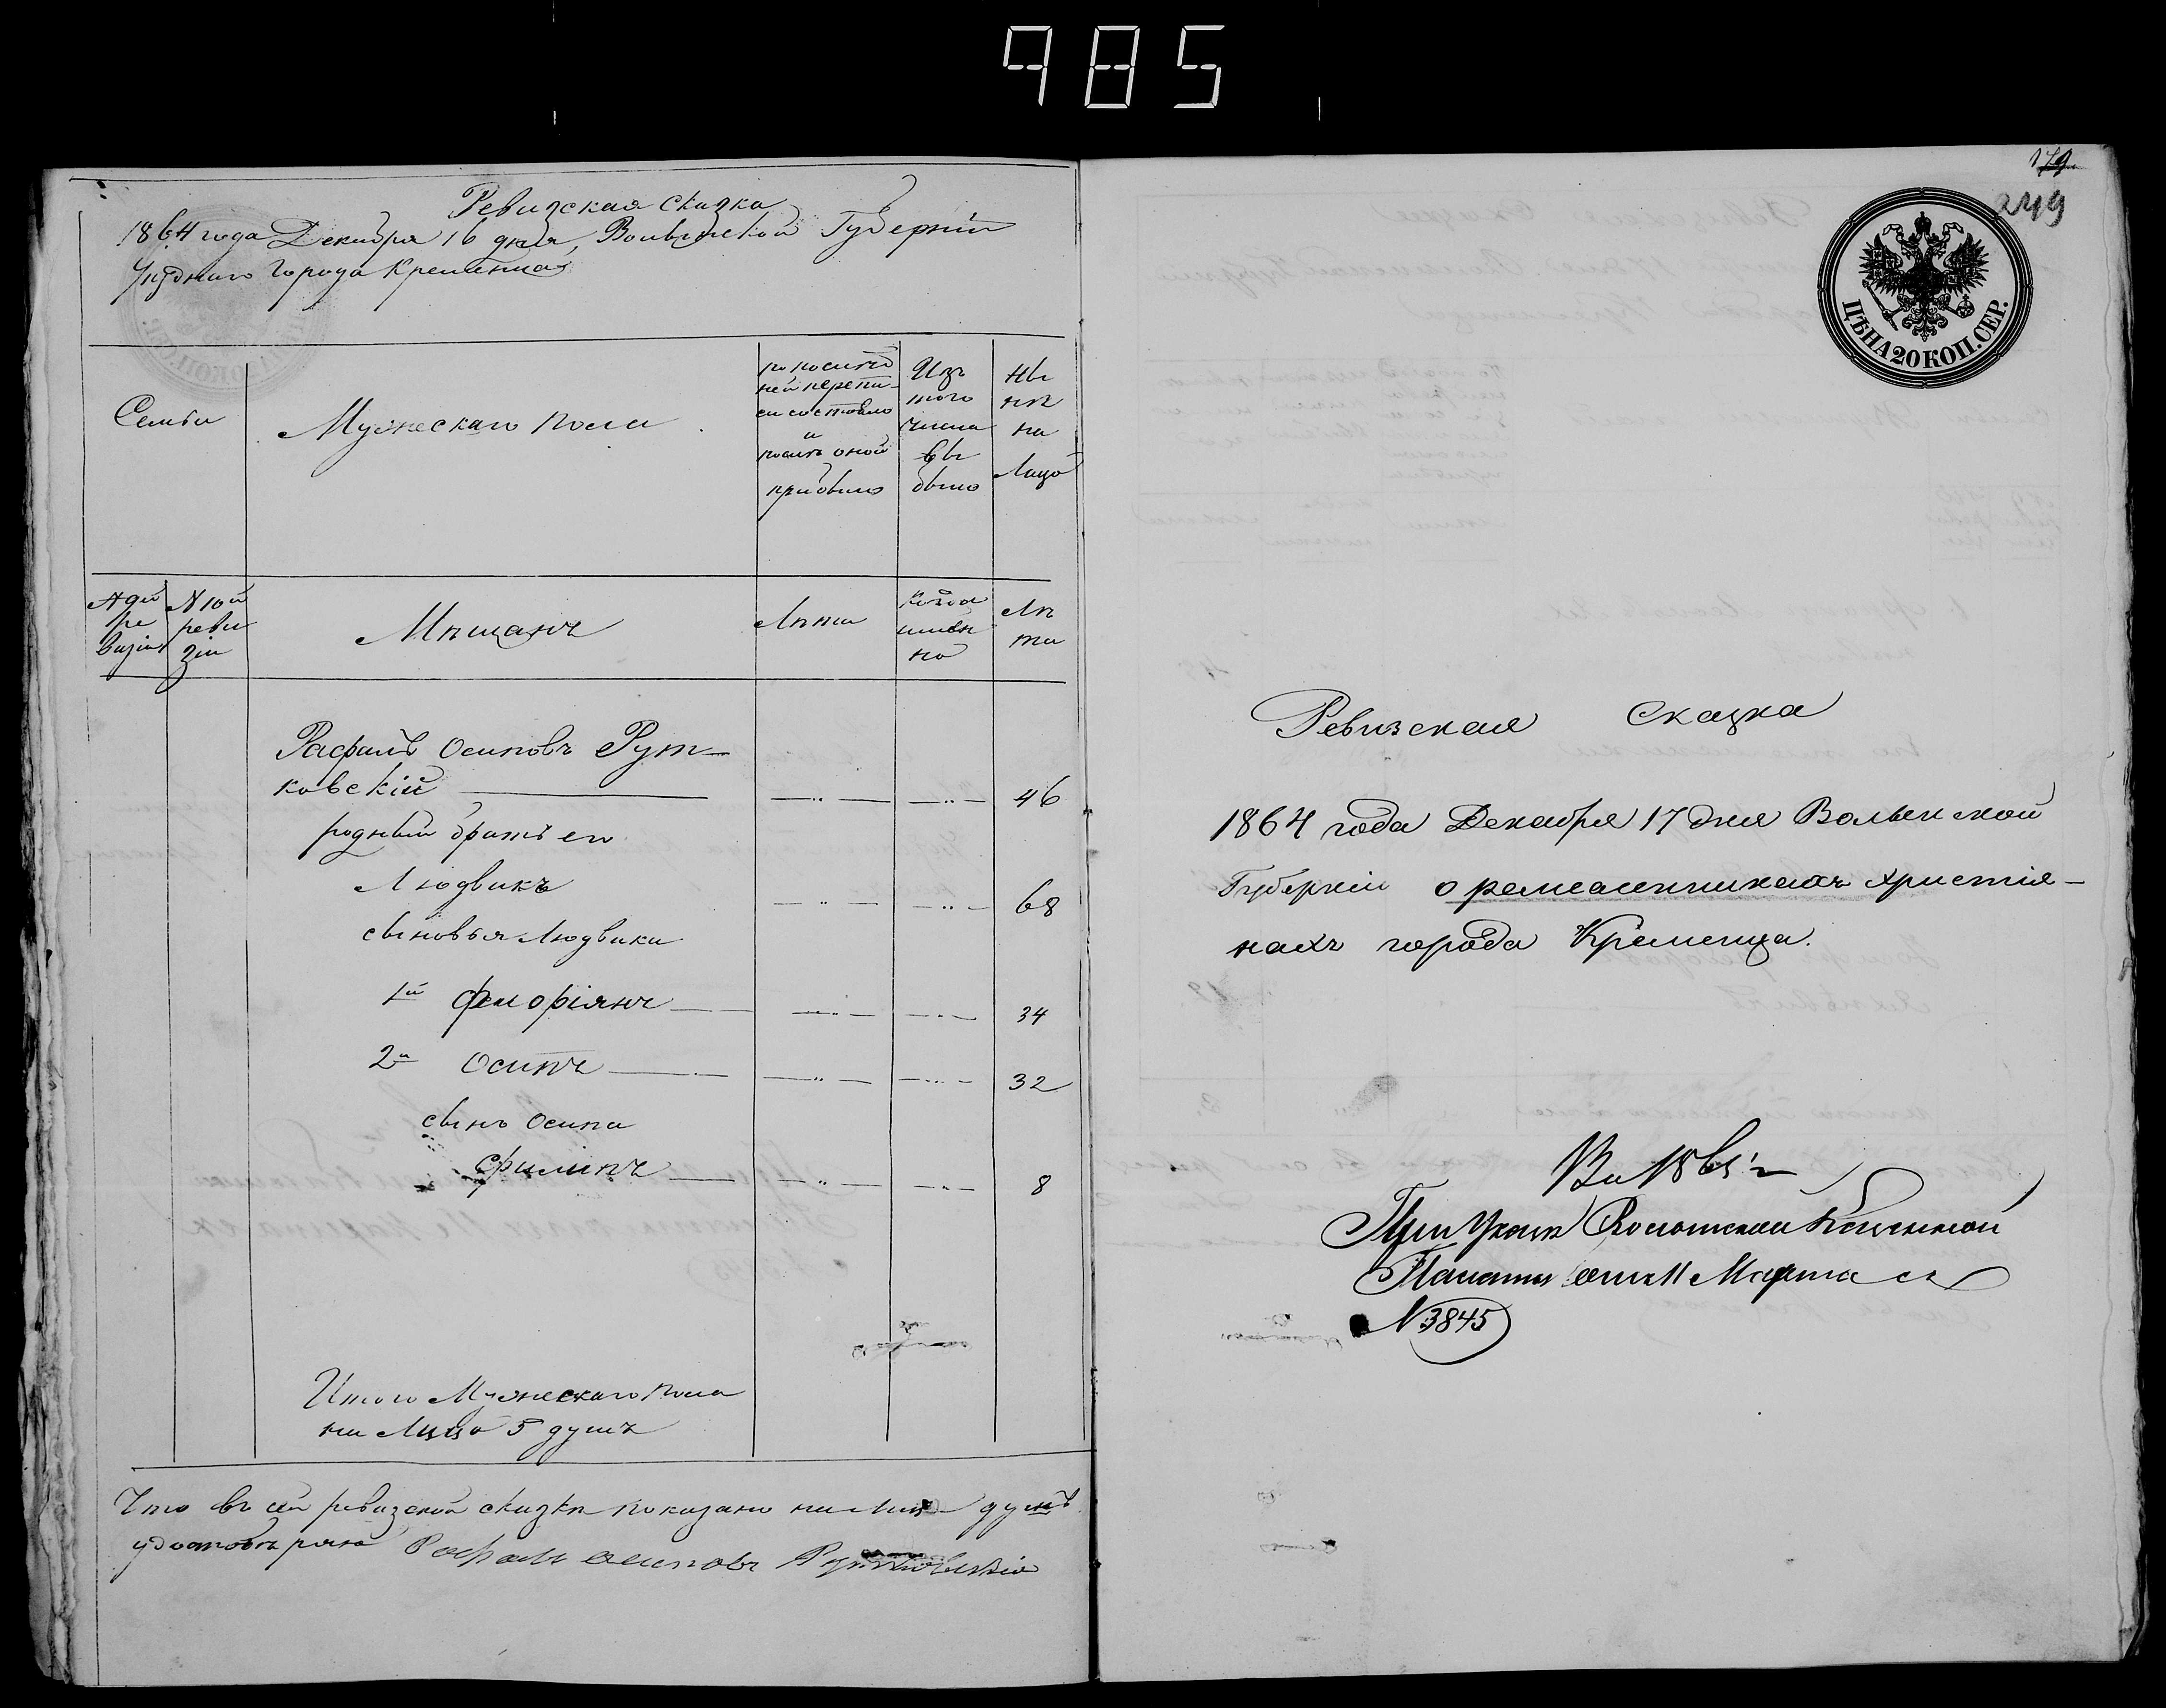 985
Ревизская сказка
1864 года Декабря 16 дня, Волынской Губерніи
Уѣзднаго города Кременца
Семьи
Мужескаго пола
по послѣд
ней перепи-
си состояло
и
послѣ оной
прибыло
Изъ
того
числа
вы
было
Ны
нѣ
на
Лицо
№ 9й
ре
визіи
№ 10й
реви
зіи
Мѣщанъ
Лѣта
когда
имен
но
Лѣ
та
Рафаилъ Осиповъ Рут-
ковскій 46
родный братъ его
Людвикъ 68
сыновья Людвика
1й Флоріянъ 34
2й Осипъ 32
сынъ Осипа
Филипъ 8
Итого Мужескаго пола
на Лицо 5 душъ
Что въ сей ревизской сказкѣ показано на лицо душъ
удостовѣряю Рафаилъ Осиповъ Рутковскій
179
249
ЦѢНА 20 КОП. СЕР.
Ревизская Сказка
1864 года Декабря 17 дня Волынской
Губерніи о ремесленникахъ христія-
нахъ города Кременца.
При Указѣ Волынской Казенной
Палаты отъ 11 Марта
N 3845